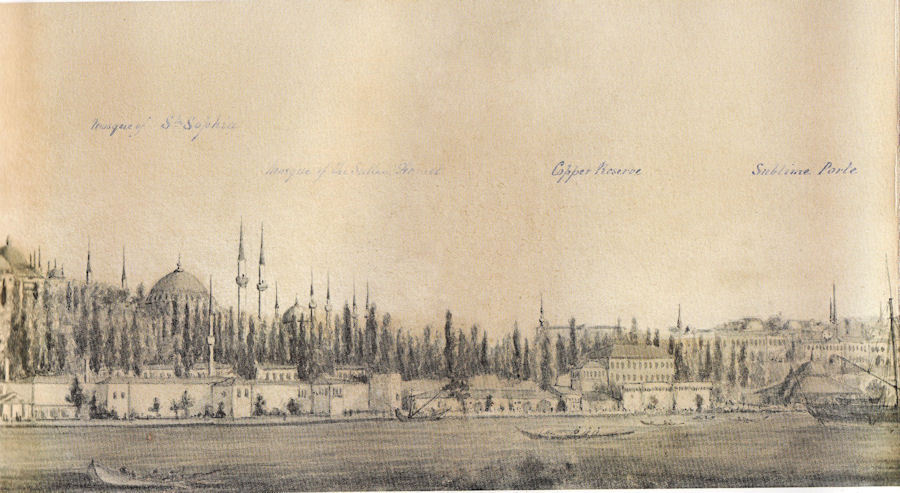 Mosque of Sta Sophia
Mosque of the Sultan Ahmet
Copper Reserve
Sublime Porte